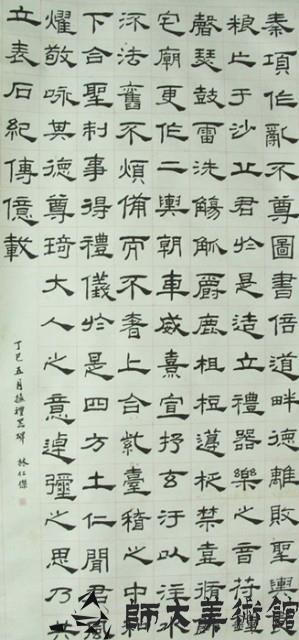 秦項作亂不尊圖書倍道畔德離敗聖輿
糧亡于沙丘君於是造立禮器樂之音符鍾
磬瑟鼓雷洗觴觚爵鹿柤梪籩柉禁壺脩飾
宅廟更作二輿朝車威熹宣抒玄汙以注水
流法舊不煩備而不奢上合紫臺稽之中和
下合聖制事得禮儀於是四方士仁聞君風
燿敬咏其德尊琦大人之意逴彌之思乃共
立表石紀傳億載
丁巳五月臨禮器碑 林仁傑
師大美術館